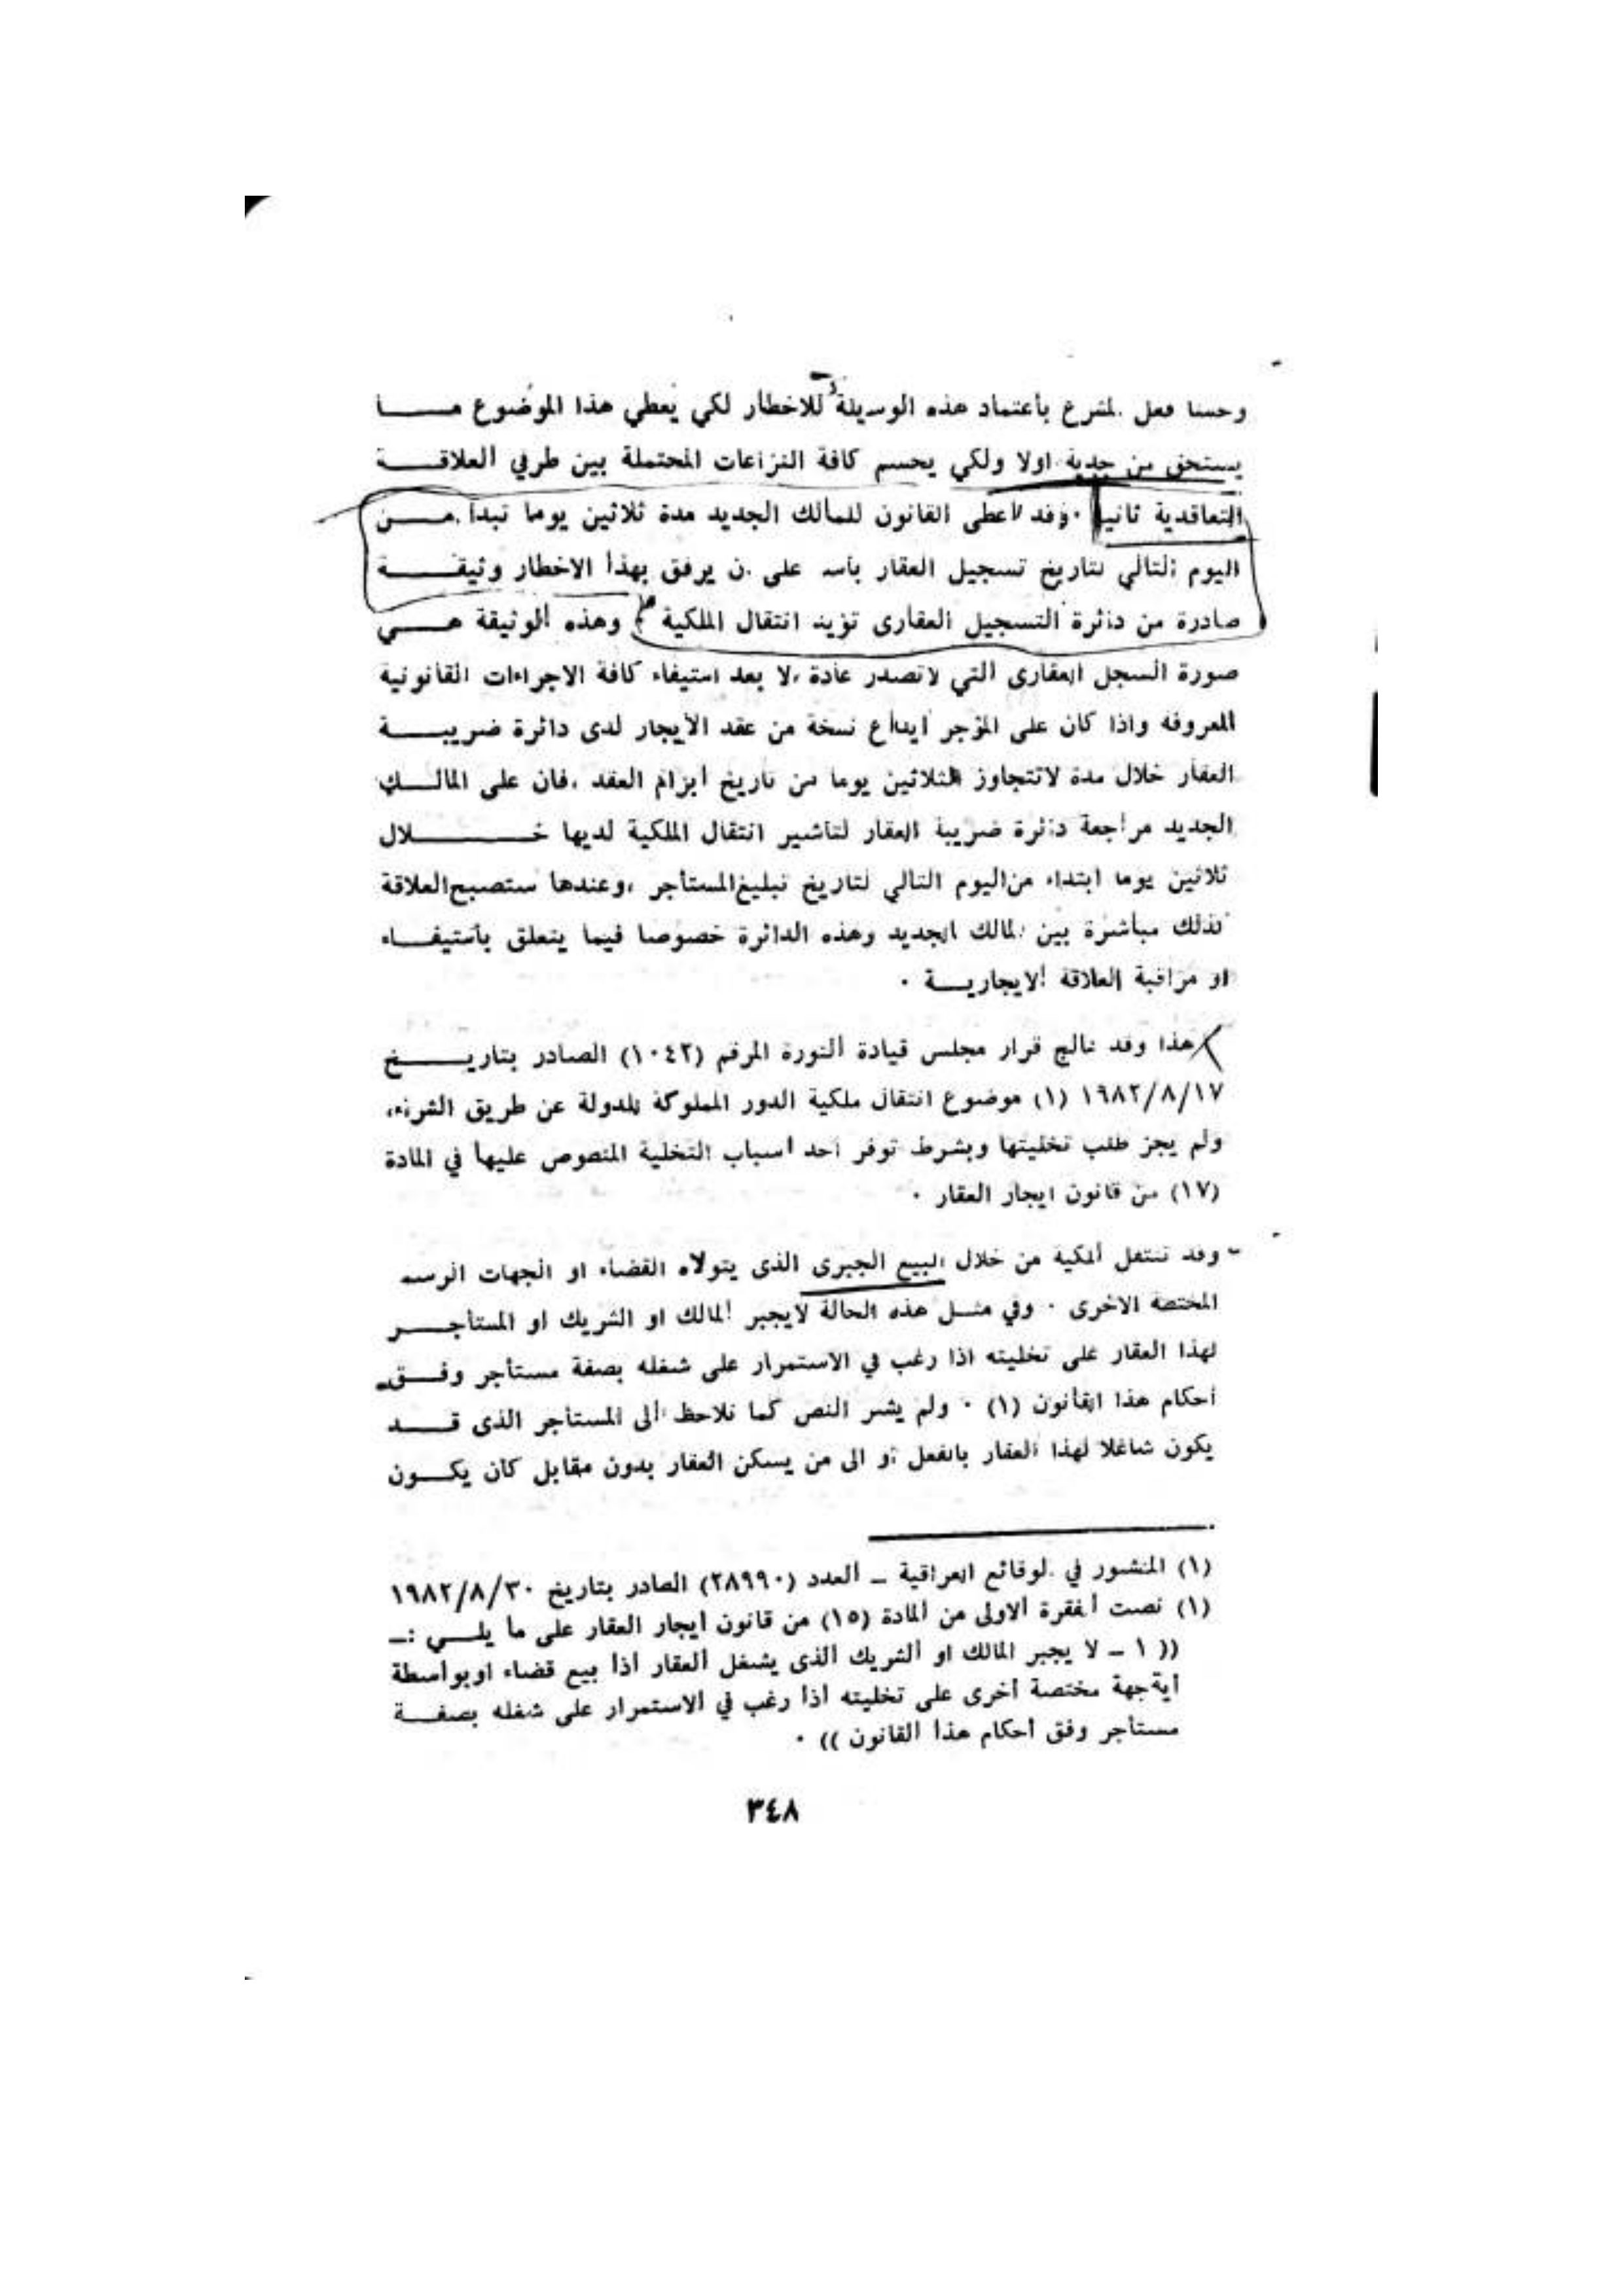 وحسنا فعل المشرع بأعتماد هذه الوسيلة للاخطار لكي يعطي هذا الموضوع مــــا
يستحق من جدية اولا ولكي يحسم كافة النزاعات المحتملة بين طرفي العلاقــــة
التعاقدية ثانيا ٠ وقد اعطى القانون للمالك الجديد مدة ثلاثين يوما تبدأ مــــن
اليوم التالي لتاريخ تسجيل العقار بأسمه على ان يرفق بهذا الاخطار وثيقــــة
صادرة من دائرة التسجيل العقارى تؤيد انتقال الملكية ، وهذه الوثيقة هــــي
صورة السجل العقارى التي لاتصدر عادة الا بعد استيفاء كافة الاجراءات القانونية
المعروفة واذا كان على المؤجر ايداع نسخة من عقد الأيجار لدى دائرة ضريبــــة
العقار خلال مدة لاتتجاوز الثلاثين يوما من تاريخ أبرام العقد ، فان على المالــــك
الجديد مراجعة دائرة ضريبة العقار لتأشير انتقال الملكية لديها خــــــلال
ثلاثين يوما ابتداء من اليوم التالي لتاريخ تبليغ المستأجر ، وعندها ستصبح العلاقة
كذلك مباشرة بين المالك الجديد وهذه الدائرة خصوصا فيما يتعلق بأستيفــــاء
او مراقبة العلاقة الايجاريــــة ٠
هذا وقد عالج قرار مجلس قيادة الثورة المرقم (١٠٤٢) الصادر بتاريــــخ
١٩٨٢/٨/١٧ (١) موضوع انتقال ملكية الدور المملوكة للدولة عن طريق الشراء،
ولم يجز طلب تخليتها وبشرط توفر أحد أسباب التخلية المنصوص عليها في المادة
(١٧) من قانون ايجار العقار ٠
- وقد تنتقل ألمكية من خلال البيع الجبرى الذى يتولاه القضاء او الجهات الرسمـ
المختصة الاخرى ٠ وفي مثــل هذه الحالة لايجبر المالك او الشريك او المستأجــــر
لهذا العقار على تخليته اذا رغب في الاستمرار على شغله بصفة مستأجر وفــــق
أحكام هذا القانون (١) ٠ ولم يشر النص كما نلاحظ الى المستأجر الذى قــــد
يكون شاغلا لهذا العقار بالفعل أو الى من يسكن العقار بدون مقابل كان يكــــون
(١) المنشور في الوقائع العراقية ــ العدد (٢٨٩٩٠) الصادر بتاريخ ١٩٨٢/٨/٣٠
(١) نصت الفقرة الاولى من المادة (١٥) من قانون ايجار العقار على ما يلــــي :ــ
(( ١ ــ لا يجبر المالك او الشريك الذى يشغل العقار اذا بيع قضاء اوبواسطة
أيةجهة مختصة أخرى على تخليته اذا رغب في الاستمرار على شغله بصفــــة
مستأجر وفق أحكام هذا القانون )) ٠
٣٤٨